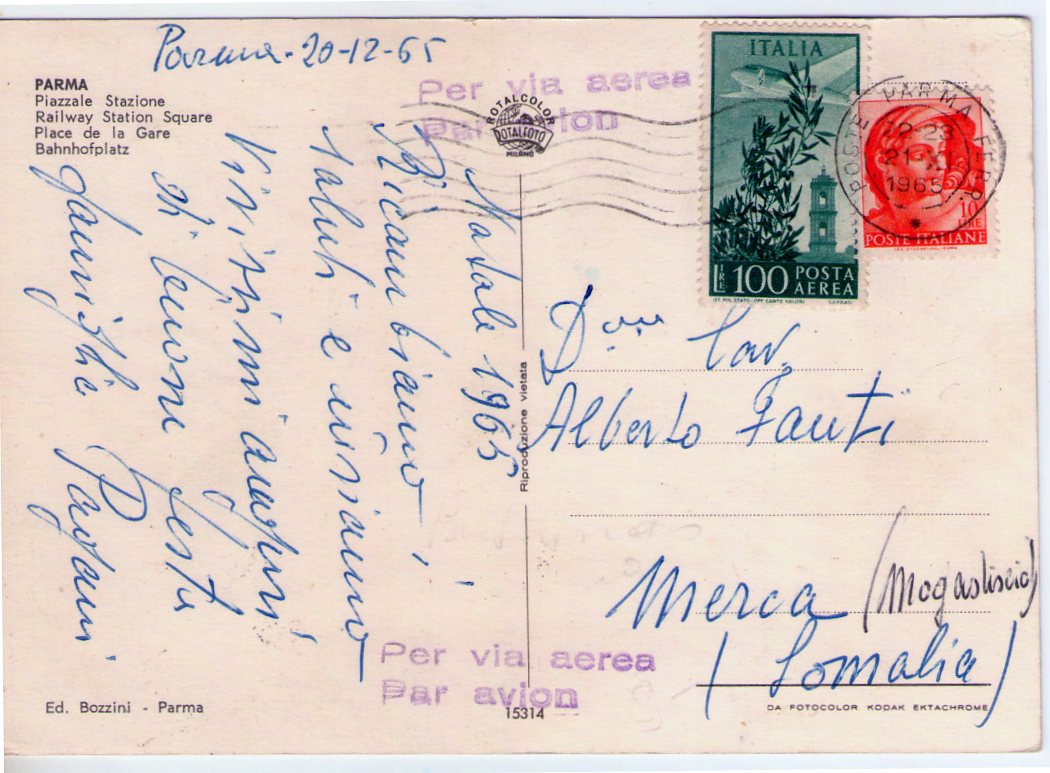 Parma - 20-12-65
PARMA
Piazzale Stazione
Railway Station Square
Place de la Gare
Bahnhofplatz
Per via aerea
Par avion
ROTALCOLOR
ROTALFOTO
MILANO
ITALIA
LIRE 100 POSTA
AEREA
IST. POL. STATO - OFF. CARTE VALORI
POSTE PARMA FERR.
12-23
1965
10
LIRE
POSTE ITALIANE
Natale 1965
Ricambiamo i
saluti e inviamo
vivissimi auguri
di buone feste
famiglia Pagani
Riproduzione vietata
Cav.
Alberto Fanti
Merca (Mogadiscio)
(Somalia)
Per via aerea
Par avion
Ed. Bozzini - Parma
15314
DA FOTOCOLOR KODAK EKTACHROME